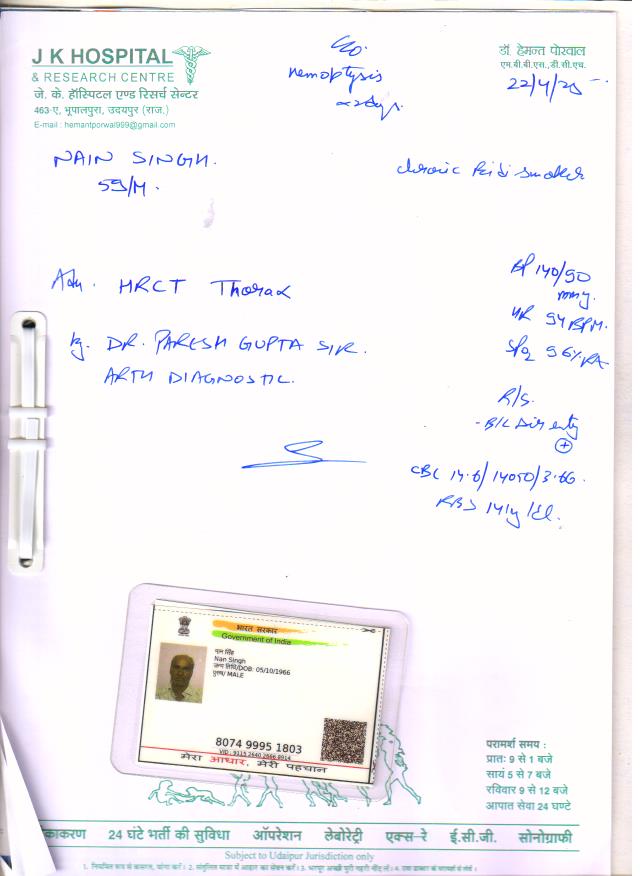 J K HOSPITAL
& RESEARCH CENTRE
जे. के. हॉस्पिटल एण्ड रिसर्च सेन्टर
463-ए, भूपालपुरा, उदयपुर (राज.)
E-mail : hemantporwal999@gmail.com
c/o.
Hemoptysis
x 2 days.
डॉ. हेमन्त पोरवाल
एम.बी.बी.एस., डी.सी.एच.
22/4/25
NAIN SINGH.
59/M.
chronic Bidi smoker
Adv. HRCT Thorax
by. DR. PARESH GUPTA SIR.
ARTH DIAGNOSTIC.
BP 140/90
mmHg.
HR 94 BPM.
SpO2 96% RA
R/S.
- B/L Air entry
+
CBC 14.6/14050/3.66.
RBS 141 mg/dl.
भारत सरकार
Government of India
नान सिंह
Nan Singh
जन्म तिथि/DOB: 05/10/1966
पुरुष/ MALE
8074 9995 1803
VID : 9115 2640 2666 8914
मेरा आधार, मेरी पहचान
परामर्श समय :
प्रातः 9 से 1 बजे
सायं 5 से 7 बजे
रविवार 9 से 12 बजे
आपात सेवा 24 घण्टे
काकरण 24 घंटे भर्ती की सुविधा ऑपरेशन लेबोरेट्री एक्स-रे ई.सी.जी. सोनोग्राफी
Subject to Udaipur Jurisdiction only